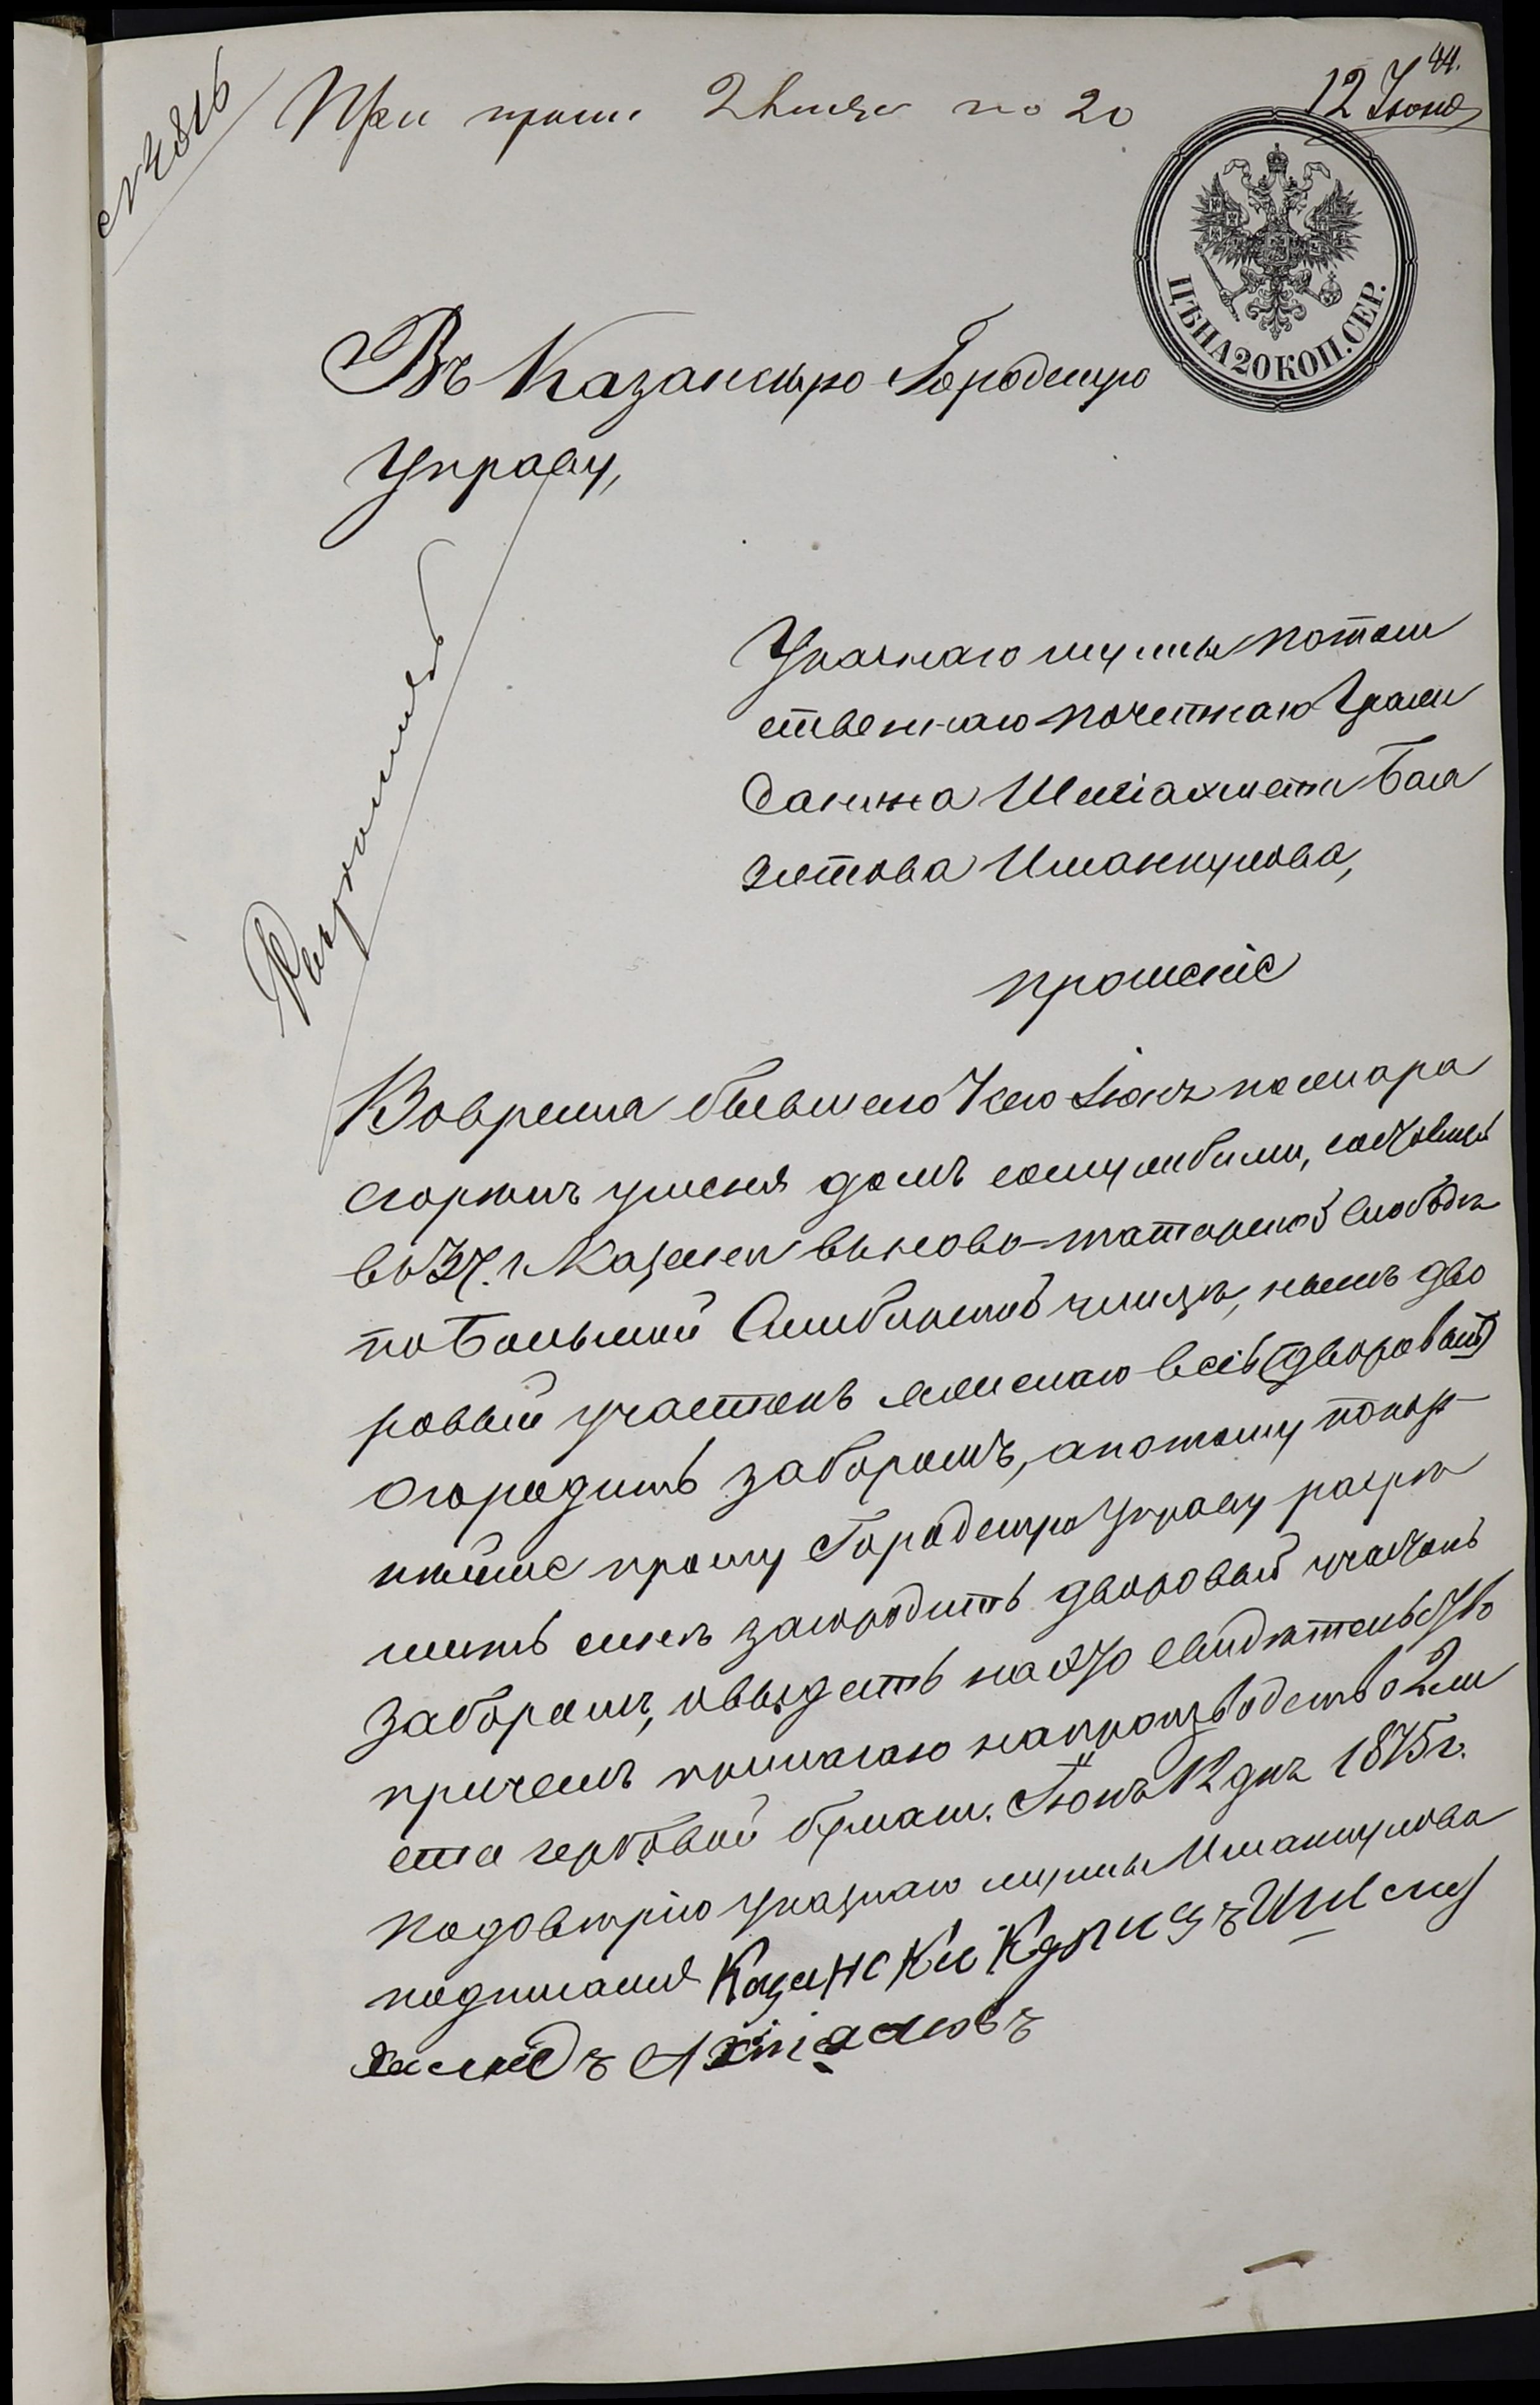 44.
12 Июня
№ 4816
При прош 2 листа по 20
ЦѢНА 20 КОП. СЕР.
Въ Казанскую Городскую
Управу,
Разрешить
Указнаго муллы потом
ственнаго почетнаго Граж
данина Шагіахмета Бая
зитова Иманкулова,
прошеніе
Вовремя бывшаго 7сего Іюня пожара
сгорѣлъ уменя домъ сослужбами, состоящій
въ 3й ч. г Казани вновo-татарской Слободѣ
по Большой Симбирской улицѣ, нынѣ дво
ровый участокъ желаю весь (дворовый)
огородить заборомъ, апотому покор-
нѣйше прошу Городскую Управу разрѣ
шить мнѣ загородить дворовый участокъ
заборомъ, ивыдать на это свидѣтельство
причемъ прилагаю напроизводство 2 ли
ста гербовой бумаги. Іюнь 12 дня 1875 г.
Подовѣрію указнаго муллы Иманкулова
подписался Казански Купицъ
Ахмѣдъ